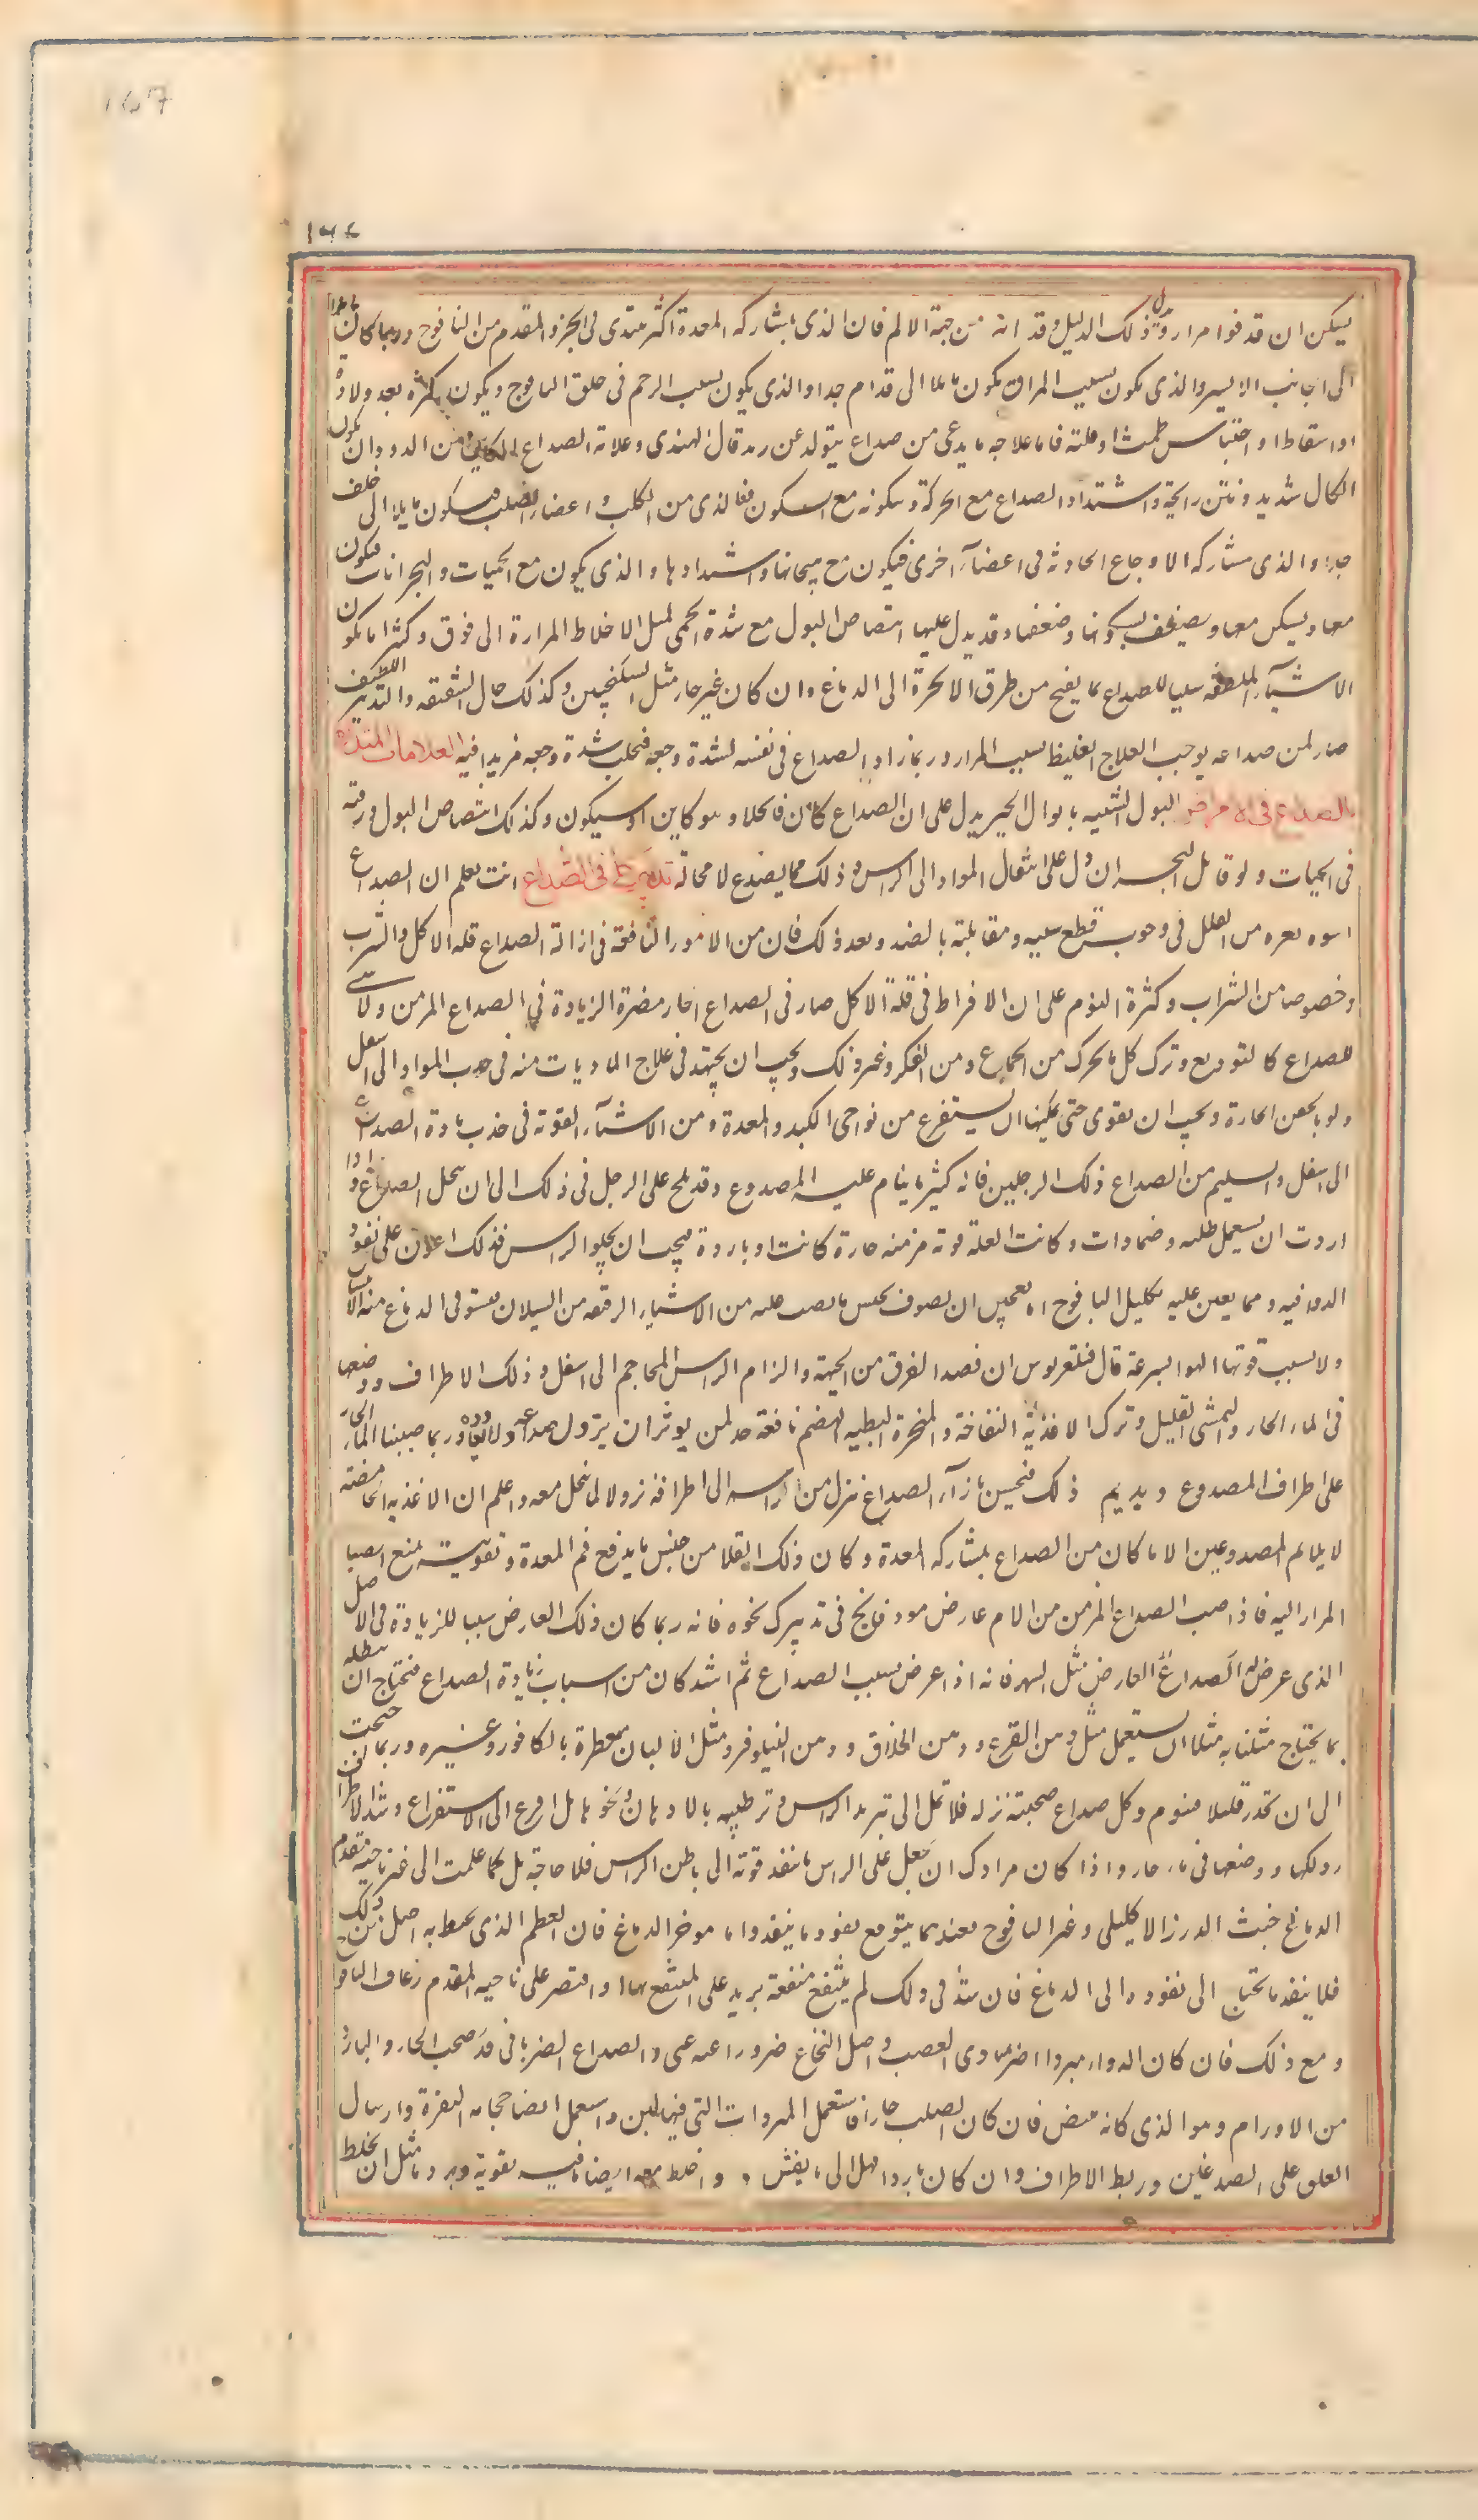 يسكن ان قذفوا مرارا وفى ذلك الدليل وقد انه من جهة الالم فان الذى بمشاركة المعدة اكثر يبتدى فى الجزء المقدم من اليافوخ وربما كان مائلا
الى الجانب الايسر والذى يكون بسبب المراق يكون مائلا الى قدام جدا والذى يكون بسبب الرحم فى حلق اليافوخ ويكون اكثره بعد ولادة
او اسقاط او احتباس طمث او قلته فاما علاجه ما يدعى من صداع يتولد عن رمد قال الهندى وعلامة الصداع الكاين من الدود ان يكون
اكال شديد ونتن رايحة واشتداد الصداع مع الحركة وسكونه مع السكون فالذى من الكلب واعضاء الصلب فيكون مايلا الى خلف
جدا والذى مشاركه الاوجاع الحادثة فى اعضآء اخرى فيكون مع هيجانها واشتدادها والذى يكون مع الحميات والبحرانات فيكون
معها ويسكن معها ويضعف بسكونها وضعفها وقد يدل عليها انتصاص البول مع شدة الحمى لميل الاخلاط المرارة الى فوق وكثيرا ما يكون
الاشيآء الملطفه سببا للصداع بما يفتح من طرق الابخرة الى الدماغ وان كان غير حار مثل السكنجبين وكذلك حال الشقيقه والتدبير اللطيف
ضار لمن صداعه يوجب العلاج الغليظ بسبب المرار وربما زاد الصداع فى نفسه لشدة وجعه فتجلب شدة وجعه مزيدا فيه العلامات المنذرة
بالصداع فى الامراض البول الشبيه بابوال الحمير يدل على ان الصداع كان فانحلا وهو كاين او سيكون وكذلك انتصاص البول ورقته
فى الحميات ولو قابل البحران دل على انتقال المواد الى الراس وذلك مما يصدع لا محالة تدبير كلى فى الصداع انت تعلم ان الصداع
اسوه بغيره من العلل فى وجوب قطع سببه ومقابلته بالضد وبعد ذلك فان من الامور النافعة فى ازالة الصداع قله الاكل والشرب
وخصوصا من الشراب وكثرة النوم على ان الافراط فى قلة الاكل ضار فى الصداع الحار مضرة الزيادة فى الصداع المزمن ولا شى
للصداع كالتوديع وترك كل ما يحرك من الجماع ومن الفكر وغير ذلك ويجب ان يجتهد فى علاج الماديات منه فى جذب المواد الى اسفل
ولو بالحقن الحادة ويجب ان يقوى حتى يمكنها ان يستفرغ من نواحى الكبد والمعدة ومن الاشيآء القوية فى جذب مادة الصداع
الى اسفل والسليم من الصداع ذلك الرجلين فانه كثيرا ما ينام عليه المصدوع وقد يلح على الرجل فى ذلك الى ان ينحل الصداع واذا
اردت ان يستعمل اطليه وضمادات وكانت العلة قويه مزمنه حارة كانت او باردة فيجب ان يحلق الراس فذلك اعون على نفوذ
الدوا فيه ومما يعين عليه تكليل اليافوخ اما بعجين او بصوف يحبس ما يصب عليه من الاشياء الرقيقه من السيلان فيستوفى الدماغ منه الاستعمال
ولا يسبب قوتها الهوا بسرعة قال فيلغريوس ان فصد العرق من الجبهة والزام الراس المحاجم الى اسفل وذلك الاطراف ووضعها
فى الماء الحار والمشى القليل وترك الاغذية النفاخة والمبخرة البطيه الهضم نافعة جدا لمن يوثر ان يزول صداعه ولا يعاوده وربما صببنا الماء الحار
على اطراف المصدوع ويديم ذلك فنحس بان الصداع ينزل من راسه الى اطرافه نزولا ينحل معه واعلم ان الاغذيه الحامضه
لا يلايم المصدوعين الا ما كان من الصداع بمشاركه المعدة وكان ذلك الغذا من جنس ما يدفع فم المعدة وتقويته بمنع انصباب
المرار اليه فاذا صحب الصداع المزمن من الالام عارض مود فانح فى تدبيرك نحوه فانه ربما كان ذلك العارض سببا للزيادة فى الاصل
الذى عرض له الصداع العارض مثل السهر فانه اذا عرض بسبب الصداع ثم اشتد كان من اسباب زيادة الصداع فتحتاج ان تبطله
بما يحتاج مثلنا به مثلا ان يستعمل مثل دهن القرع ودهن الخلاف ودهن النيلوفر ومثل الالبان معطرة بالكافور وغيره وربما احتجت
الى ان تخدر قليلا منوم وكل صداع صحبته نزله فلا تمل الى تبريد الراس وترطيبه بالادهان ونحوها بل افزع الى الاستفراغ وشد الاطراف
ودلكها ووضعها فى ماء حار واذا كان مرادك ان تجعل على الراس ما ينفذ قوته الى باطن الراس فلا حاجة بك كما علمت الى غير ناحية مقدم
الدماغ حيث الدرز الاكليلى وغير اليافوخ فعندهما يتوقع نفوذ ما ينفذ واما موخر الدماغ فان العظم الذى يحيط به اصلب من ذلك
فلا ينفذ ما يحتاج الى نفوذه الى الدماغ فان شذ فى ذلك لم ينتفع منفعة يزيد على المنتفع بها واقتصر على ناحيه المقدم زعاف اليافوخ
ومع ذلك فان كان الدواء مبردا اضر بمبادى العصب واصل النخاع ضرورا عنه غنى والصداع الضربانى قد صحب الحار والبارد
من الاورام وهو الذى كانه ينبض فان كان الصلب حارا فاستعمل المبردات التى فيها لين واستعمل ايضا حجامه النقرة وارسال
العلق على الصدغين وربط الاطراف وان كان باردا فمل الى ما يفش واخلط معه ايضا ما فيه تقوية وبرد ما مثل ان يخلط